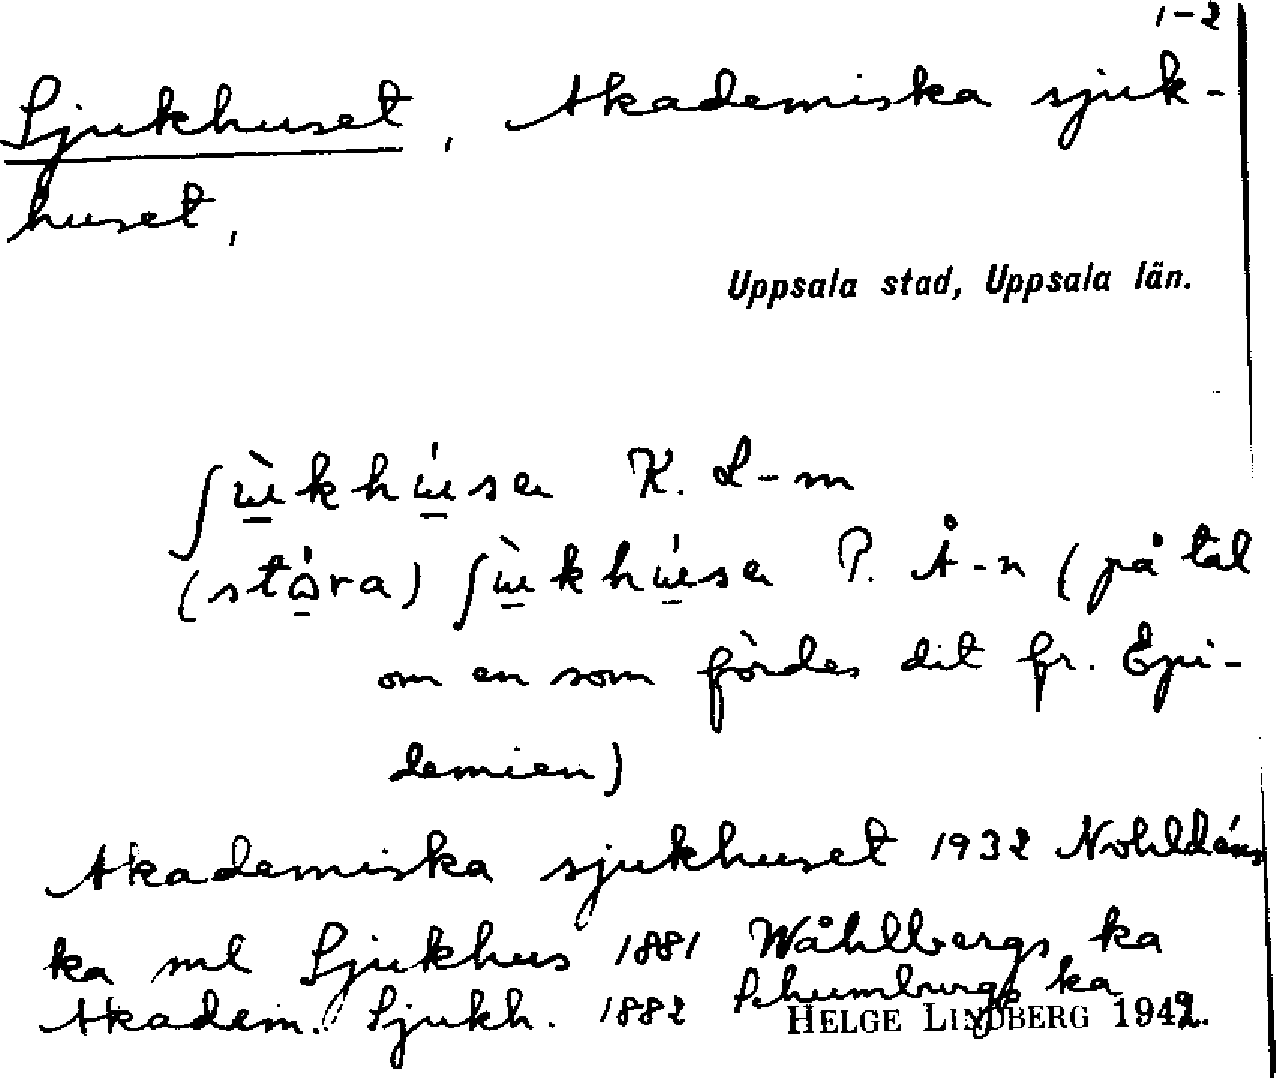 1-2
Sjukhuset, Akademiska sjuk-
huset,
Uppsala stad, Uppsala län.
ʃɯ̱̀khɯ̱́sen K. L-m
(stó̱ra) ʃɯ̱̀khɯ̱́sen P. Å-n (på tal
om en som fördes dit fr. Epi-
demien)
Akademiska sjukhuset 1932 Nohldéns
ka ml Sjukhus 1881 Wåhlbergs ka
Akadem. Sjukh. 1882 Schumburgs ka
HELGE LINDBERG 1942.